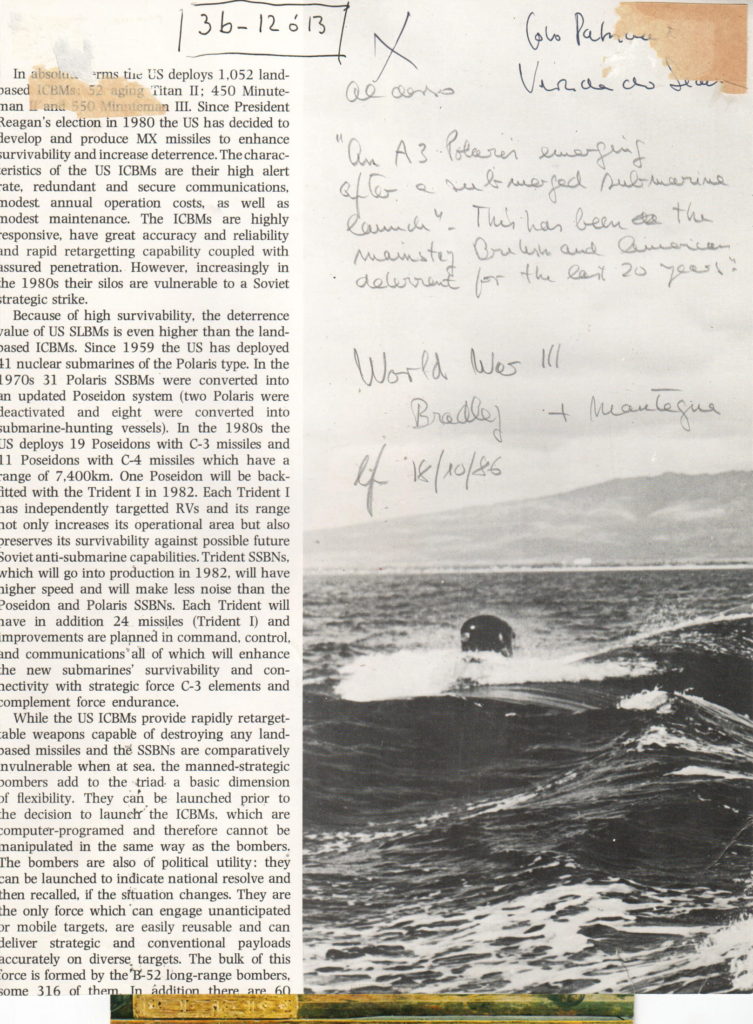 3b-12 ó 13
In absolute terms the US deploys 1,052 land-
based ICBMs: 52 aging Titan II; 450 Minute-
man II and 550 Minuteman III. Since President
Reagan's election in 1980 the US has decided to
develop and produce MX missiles to enhance
survivability and increase deterrence. The charac-
teristics of the US ICBMs are their high alert
rate, redundant and secure communications,
modest annual operation costs, as well as
modest maintenance. The ICBMs are highly
responsive, have great accuracy and reliability
and rapid retargetting capability coupled with
assured penetration. However, increasingly in
the 1980s their silos are vulnerable to a Soviet
strategic strike.
Because of high survivability, the deterrence
value of US SLBMs is even higher than the land-
based ICBMs. Since 1959 the US has deployed
41 nuclear submarines of the Polaris type. In the
1970s 31 Polaris SSBMs were converted into
an updated Poseidon system (two Polaris were
deactivated and eight were converted into
submarine-hunting vessels). In the 1980s the
US deploys 19 Poseidons with C-3 missiles and
11 Poseidons with C-4 missiles which have a
range of 7,400km. One Poseidon will be back-
fitted with the Trident I in 1982. Each Trident I
has independently targetted RVs and its range
not only increases its operational area but also
preserves its survivability against possible future
Soviet anti-submarine capabilities. Trident SSBNs,
which will go into production in 1982, will have
higher speed and will make less noise than the
Poseidon and Polaris SSBNs. Each Trident will
have in addition 24 missiles (Trident I) and
improvements are planned in command, control,
and communications all of which will enhance
the new submarines' survivability and con-
nectivity with strategic force C-3 elements and
complement force endurance.
While the US ICBMs provide rapidly retarget-
table weapons capable of destroying any land-
based missiles and the SSBNs are comparatively
invulnerable when at sea, the manned-strategic
bombers add to the triad a basic dimension
of flexibility. They can be launched prior to
the decision to launch the ICBMs, which are
computer-programed and therefore cannot be
manipulated in the same way as the bombers.
The bombers are also of political utility: they
can be launched to indicate national resolve and
then recalled, if the situation changes. They are
the only force which can engage unanticipated
or mobile targets, are easily reusable and can
deliver strategic and conventional payloads
accurately on diverse targets. The bulk of this
force is formed by the B-52 long-range bombers,
some 316 of them. In addition there are 60
X
"An A3 Polaris emerging
after a submerged submarine
launch". This has been the
mainstay British and American
deterrent for the last 20 years".
World War III
Bradley + Mantegna
18/10/86